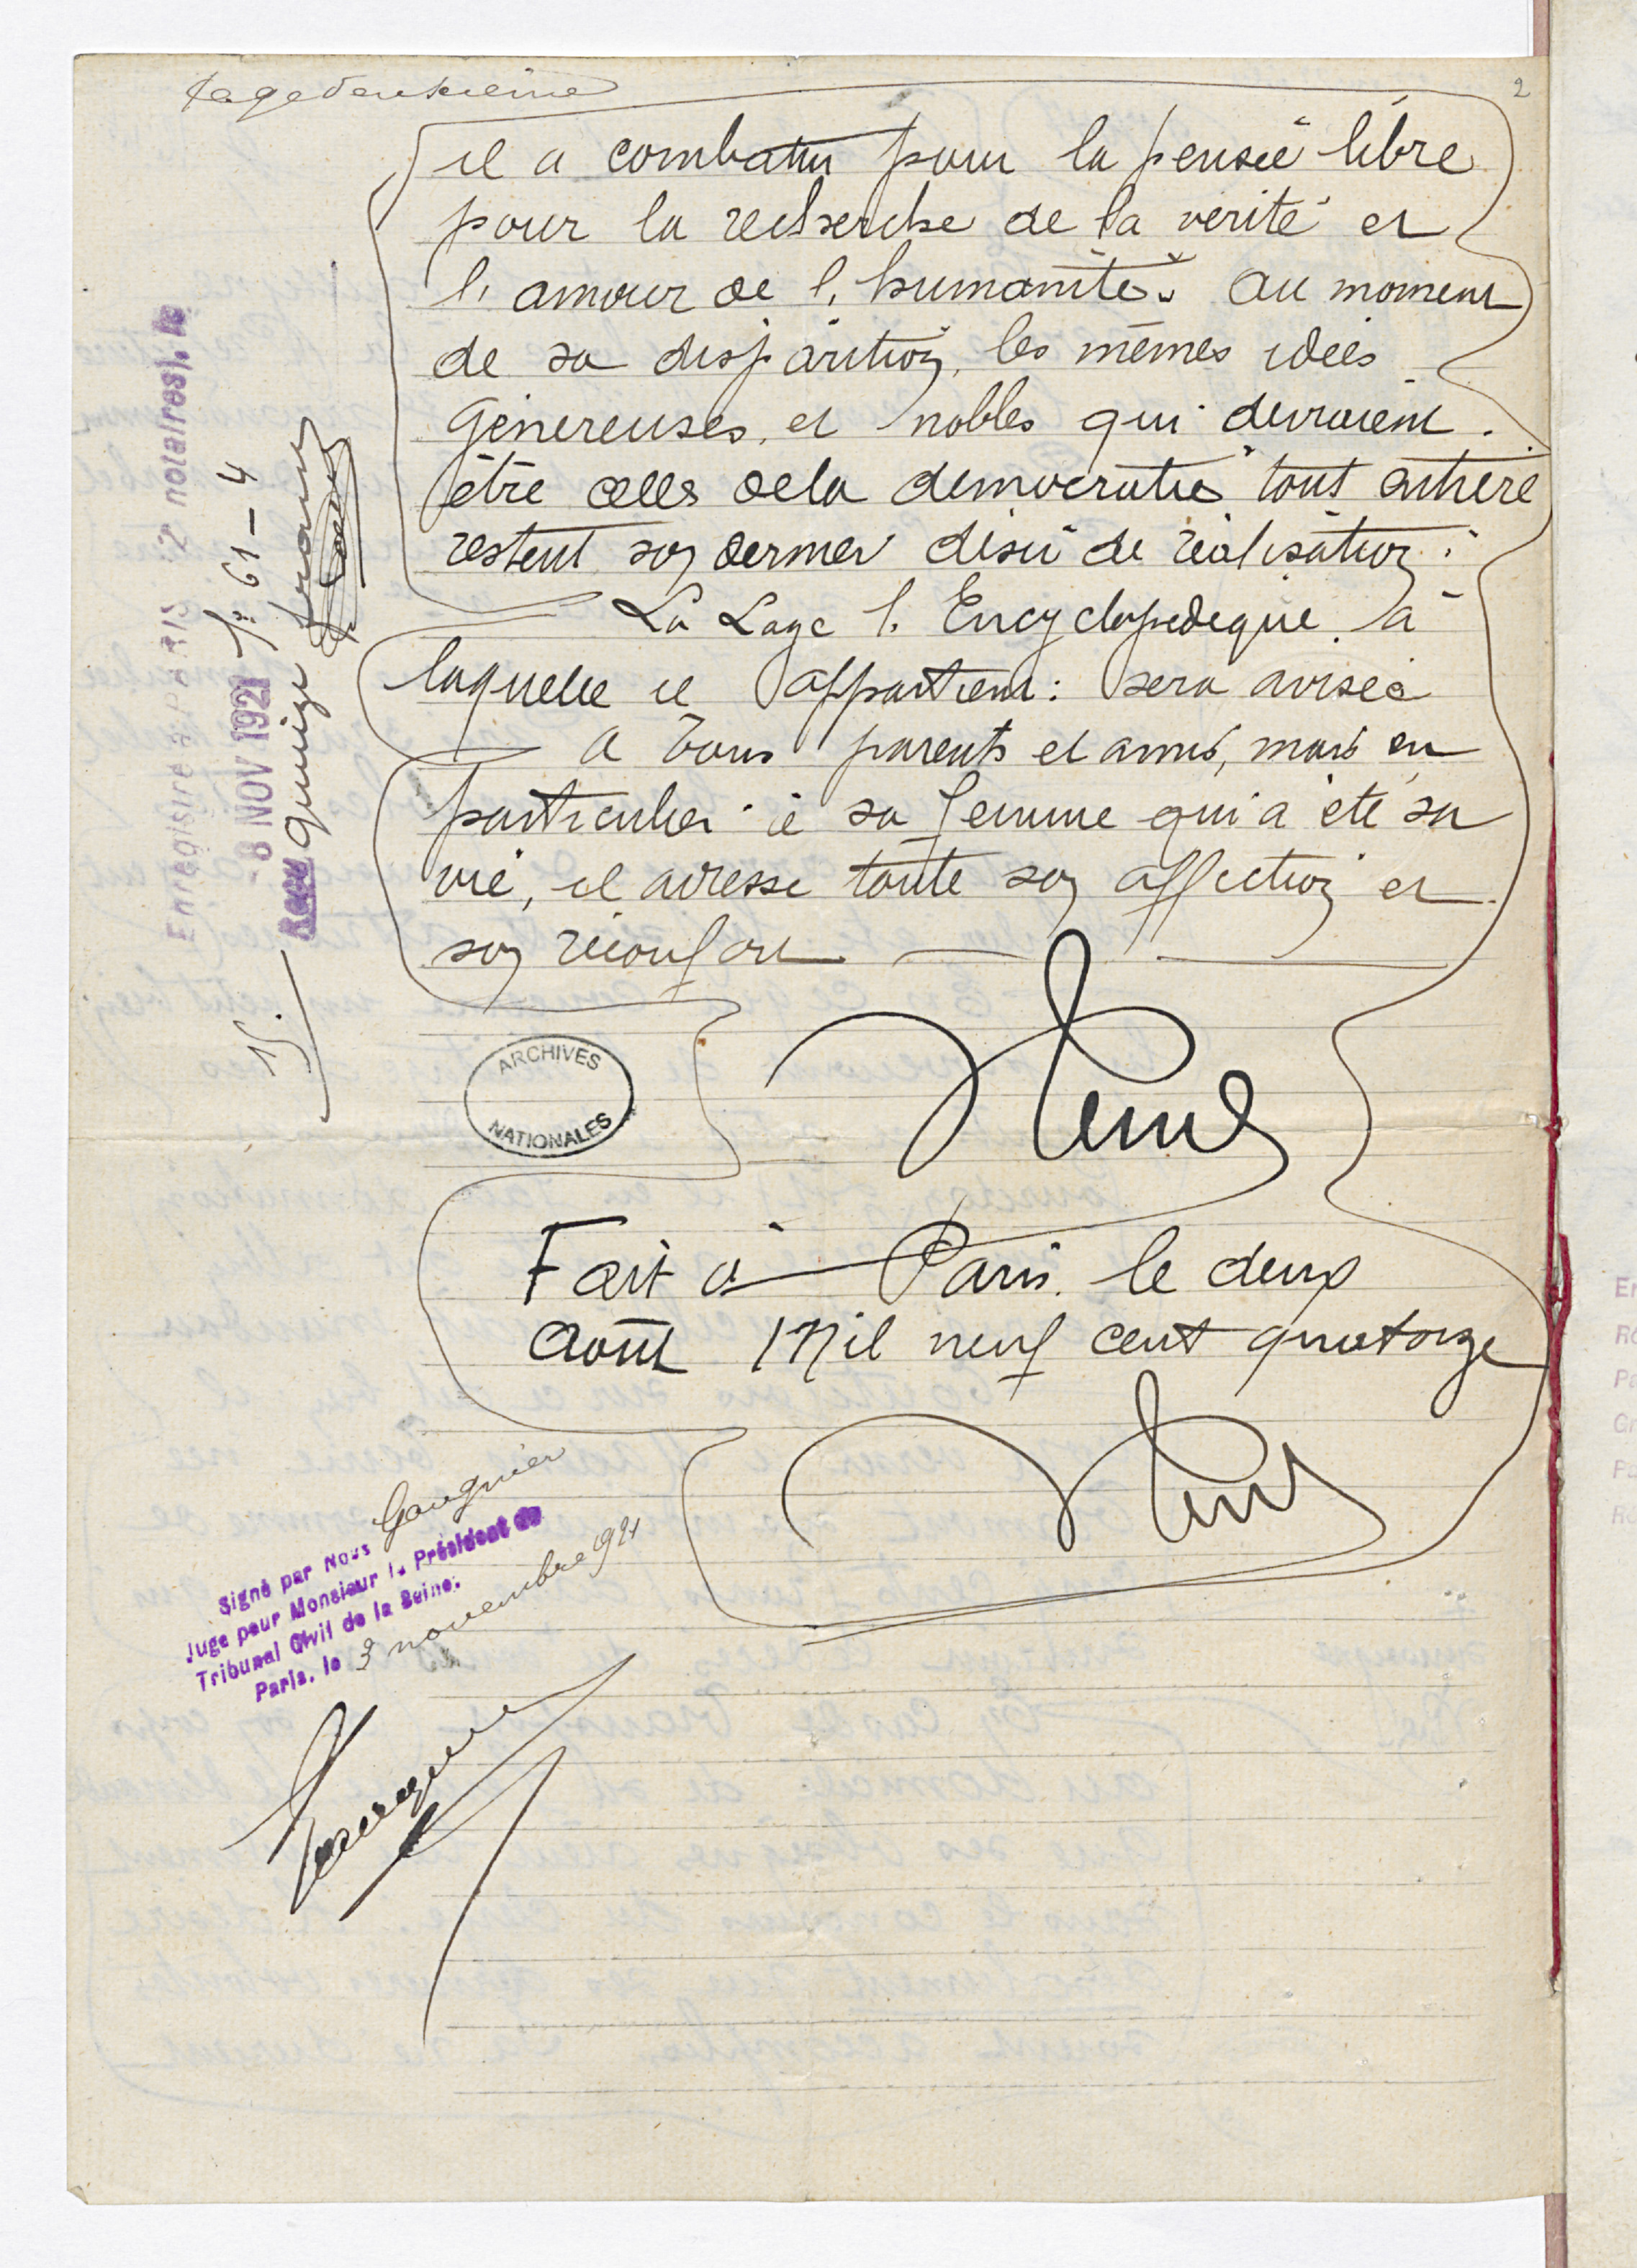 Page deuxieme
2
il a combattu pour la pensée libre
pour la recherche de la verité et
l'amour de l'humanité. Au moment
de sa disparition, les mêmes idées
génereuses, et nobles qui devraient
être celles de la democratie tout entière
restent son dernier désir de réalisation :
La Loge l'Encyclopedique, à
laquelle il appartient : sera avisée
A tous parents et amis, mais en
particulier à sa femme qui a été sa
vie, il adresse toute son affection et
son réconfort
ARCHIVES
NATIONALES
Fait à Paris. le deux
Août Mil neuf cent quatorze
Enregistré à PARIS 2e notaires), le
- 8 NOV 1921 fo 61 - 4
Reçu quinze francs
15.
Signé par Nous Gaugnier
Juge pour Monsieur le Président du
Tribunal Civil de la Seine.
Paris, le 3 novembre 1921